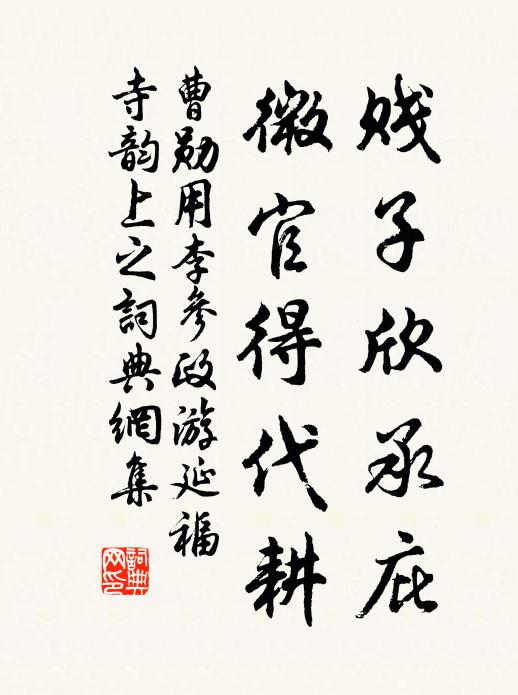 賤子欣承庇
微官得代耕
曹勛用李參政游延福
寺韵上之詞典網集
詞典网印